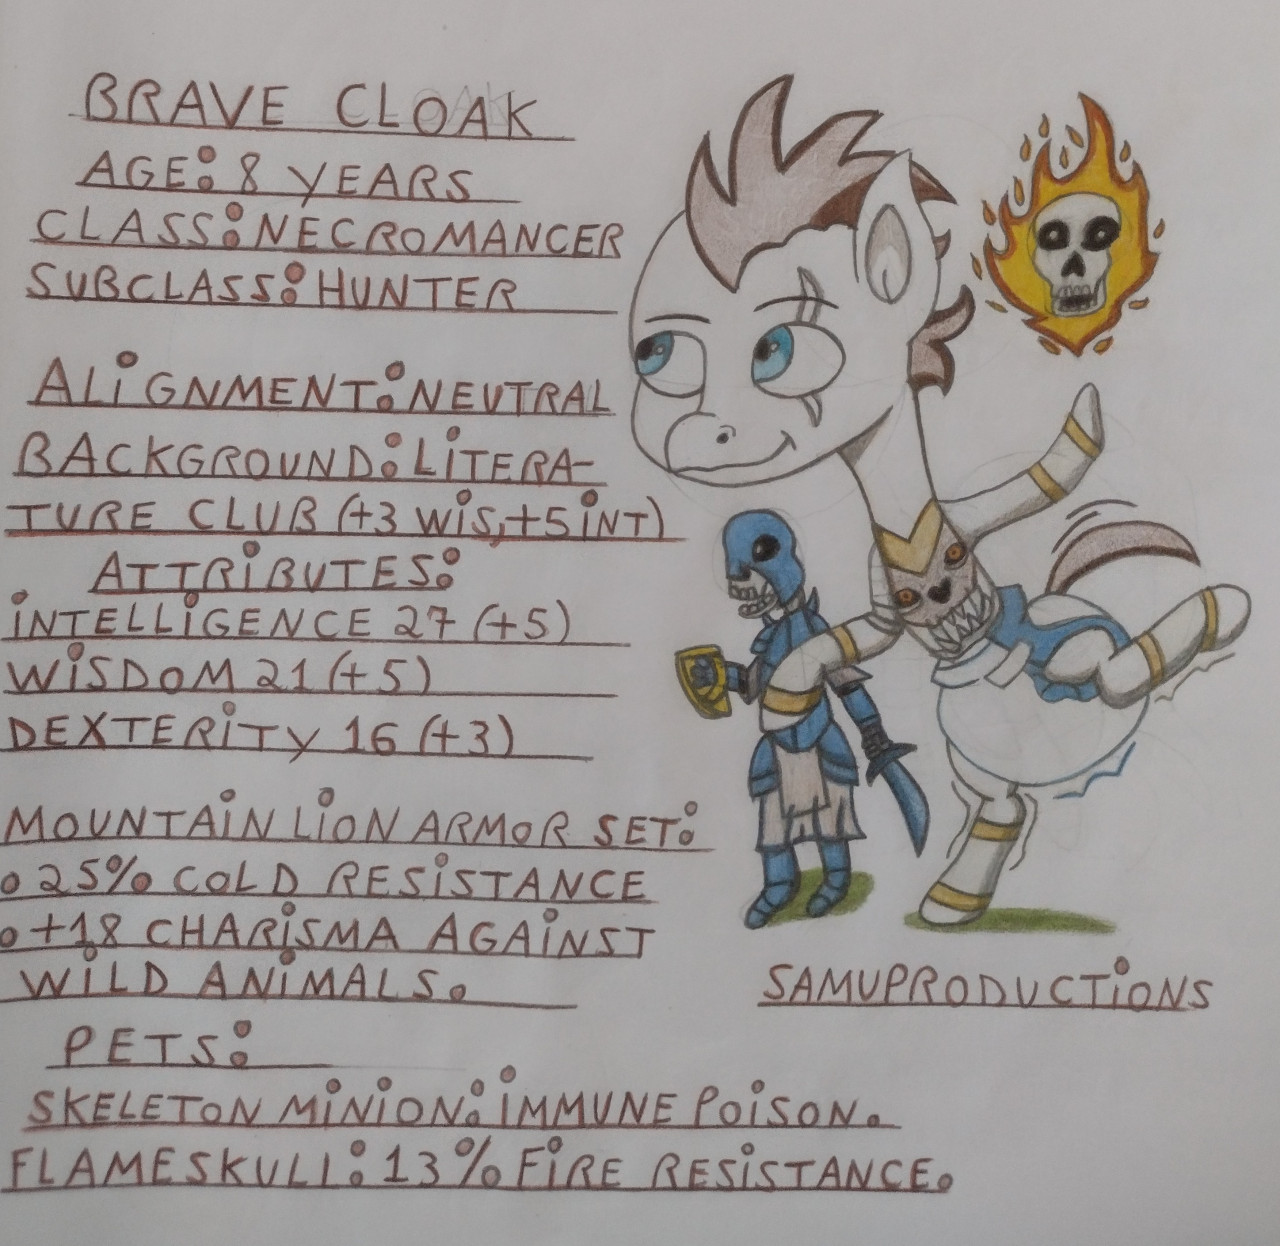 BRAVE CLOAK
AGE: 8 YEARS
CLASS: NECROMANCER
SUBCLASS: HUNTER
ALiGNMENT: NEUTRAL
BACKGROUND: LiTERA-
TURE CLUB (+3 WiS, +5 iNT)
ATTRiBUTES:
iNTELLiGENCE 27 (+5)
WiSDOM 21 (+5)
DEXTERiTY 16 (+3)
MOUNTAiN LiON ARMOR SET:
• 25% COLD RESiSTANCE
• +18 CHARiSMA AGAiNST
WiLD ANiMALS.
PETS:
SKELETON MiNiON: iMMUNE POiSON.
FLAMESKULL: 13% FiRE RESiSTANCE.
SAMUPRODUCTiONS